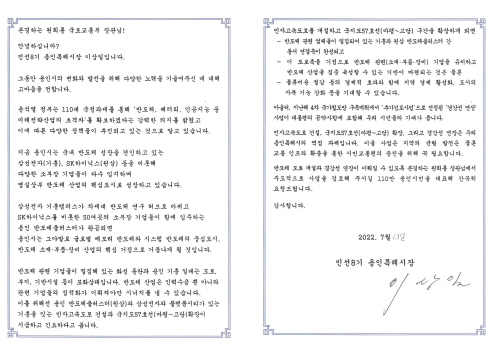 존경하는 원희룡 국토교통부 장관님!
안녕하십니까?
민선8기 용인특례시장 이상일입니다.
그동안 용인시의 변화와 발전을 위해 다양한 노력을 기울여주신 데 대해
고마움을 전합니다.
윤석열 정부는 110대 국정과제를 통해 "반도체, 배터리, 인공지능 등
미래전략산업의 초격차"를 확보하겠다는 강력한 의지를 밝혔고
이에 따른 다양한 정책들이 추진되고 있는 것으로 알고 있습니다.
지금 용인시는 국내 반도체 성장을 견인하고 있는
삼성전자(기흥), SK하이닉스(원삼) 등을 비롯해
다양한 소부장 기업들이 다수 입지하며
명실상부 반도체 산업의 핵심도시로 성장하고 있습니다.
삼성전자 기흥캠퍼스가 차세대 반도체 연구 허브로 바뀌고
SK하이닉스를 비롯한 50여곳의 소부장 기업들이 함께 입주하는
용인 반도체클러스터가 완공되면
용인시는 그야말로 글로벌 메모리 반도체와 시스템 반도체의 중심도시,
반도체 소재·부품·장비 산업의 핵심 거점으로 거듭나게 될 것입니다.
반도체 관련 기업들이 밀집해 있는 화성 동탄과 용인 기흥 일대는 도로
부지, 기반시설 등이 포화상태입니다. 반도체 산업은 인력수급 뿐 아니라
관련 기업들의 집적화가 이뤄져야만 시너지를 낼 수 있습니다.
이를 위해선 용인 반도체클러스터(원삼)와 삼성전자와 플랫폼시티가 있는
기흥을 잇는 민자고속도로 건설과 국지도57호선(마평~고당)확장이
시급하고 긴요하다고 봅니다.
민자고속도로를 개설하고 국지도57호선(마평~고당) 구간을 확장하게 되면
- 반도체 관련 업체들이 밀집되어 있는 기흥과 원삼 반도체클러스터 간
동서 연결축이 완성되고
- 이 도로축을 거점으로 반도체 관련(소재·부품·장비) 기업을 유치하고
반도체 산업을 집중 육성할 수 있는 기반이 마련되는 것은 물론
- 물류비용 절감 등의 경제적 효과와 함께 지역 경제 활성화, 도시의
자족 기능 강화 등을 기대할 수 있습니다.
아울러, 지난해 4차 국가철도망 구축계획에서 '추가검토사업'으로 선정된 '경강선 연장'
사업이 대통령의 공약사항에 포함돼 우리 시민들의 기대가 큽니다.
민자고속도로 건설, 국지도57호선(마평~고당) 확장, 그리고 경강선 연장은 우리
용인특례시의 역점 과제입니다. 이들 사업은 지역의 균형 발전은 물론
교통 인프라 확충을 통한 시민교통편의 증진을 위해 꼭 필요합니다.
반도체 도로 개설과 경강선 연장이 이뤄질 수 있도록 존경하는 원희룡 장관님께서
주도적으로 사업을 검토해 주시길 110만 용인시민을 대표해 간곡히
요청드립니다.
감사합니다.
2022. 7월 13일
민선8기 용인특례시장
이상일